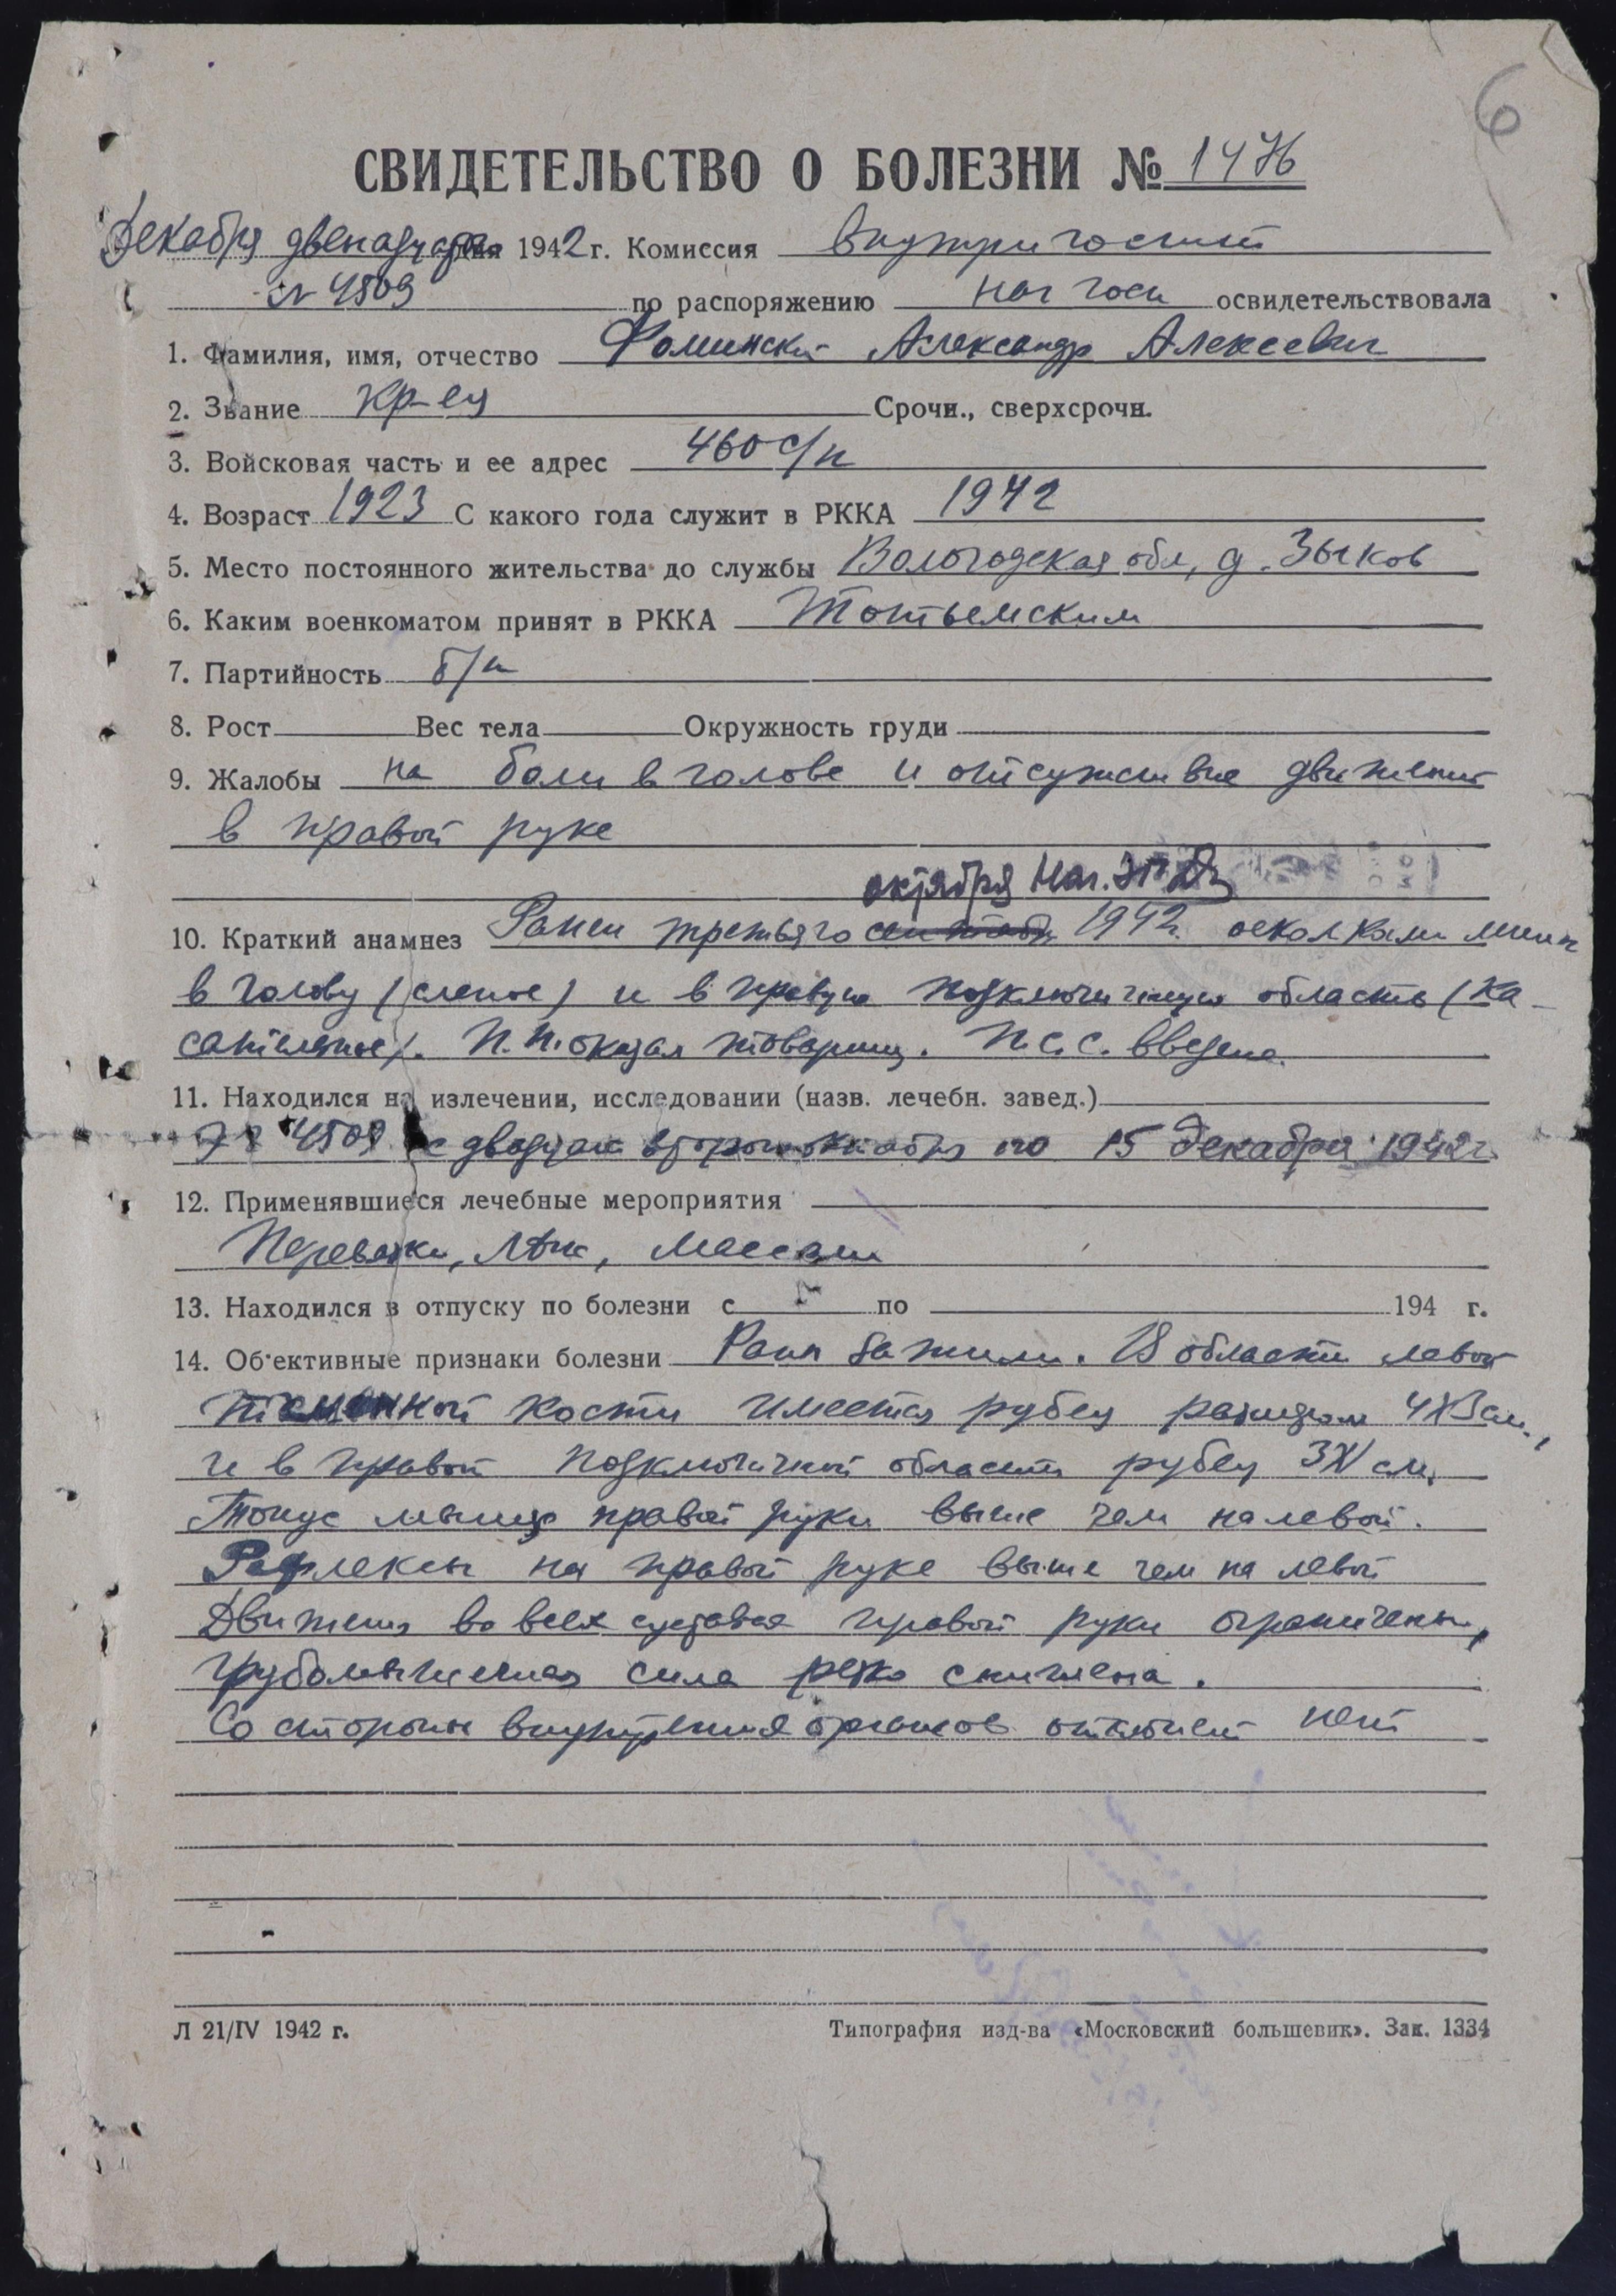 6
СВИДЕТЕЛЬСТВО О БОЛЕЗНИ № 1476
Декабря двенадцат дня 1942 г. Комиссия внутригоспит
№ 4509 по распоряжению нач госп освидетельствовала
1. Фамилия, имя, отчество Фоминский Александр Алексеевич
2. Звание кр-ец Срочн., сверхсрочн.
3. Войсковая часть и ее адрес 460 с/п
4. Возраст 1923 С какого года служит в РККА 1942
5. Место постоянного жительства до службы Вологодская обл, д. Зыков
6. Каким военкоматом принят в РККА Тотьемским
7. Партийность б/п
8. Рост Вес тела Окружность груди
9. Жалобы на боли в голове и отсутствие движения
в правой руке
октября Нач.
10. Краткий анамнез Ранен третьяго 1942 г. осколками мины
в голову (слепое) и в правую подключичную область (ка-
сательное). П.П. оказал товарищ. П.С.С. введена.
11. Находился на излечении, исследовании (назв. лечебн. завед.)
ЭГ 4509 с двадцать второго октября по 15 декабря 1942 г.
12. Применявшиеся лечебные мероприятия
Перевязки, ЛФК, массаж
13. Находился в отпуску по болезни с по 194 г.
14. Об'ективные признаки болезни Раны зажили. В области левой
теменной кости имеется рубец размером 4х3 см.,
и в правой подключичной области рубец см.
Тонус мышц правой руки выше чем на левой.
Рефлексы на правой руке выше чем на левой
Движения во всех суставах правой руки ограничены,
грубомышечная сила резко снижена.
Со стороны внутренних органов отклонений нет
Л 21/IV 1942 г. Типография изд-ва «Московский большевик». Зак. 1334